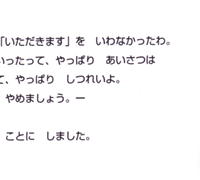 「いただきます」を　いわなかったわ。
いったって、やっぱり　あいさつは
て、やっぱり　しつれいよ。
やめましょう。ー
ことに　しました。